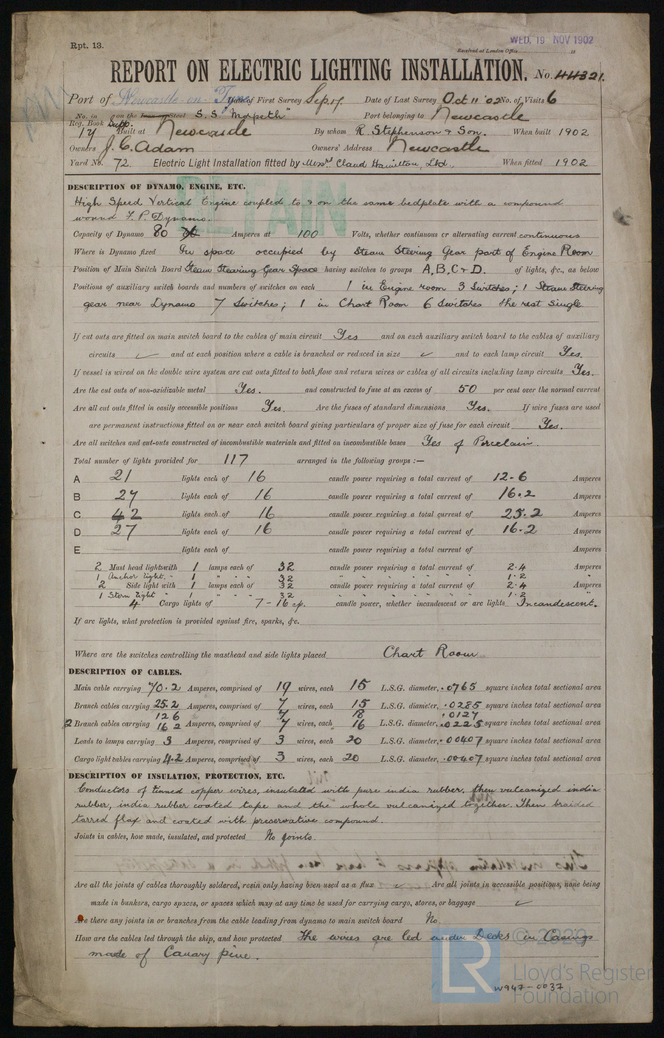 Rpt. 13.
WED. 19 NOV 1902
Received at London Office 19
REPORT ON ELECTRIC LIGHTING INSTALLATION. No. 44321.
Port of Newcastle-on-Tyne Date of First Survey Sep 17 Date of Last Survey Oct 11 '02 No. of Visits 6
No. in on the S.S. "Morpeth" Port belonging to Newcastle
Reg. Book Supp.
17 Built at Newcastle By whom R. Stephenson & Son. When built 1902
Owners J. C. Adam Owners' Address Newcastle
Yard No. 72 Electric Light Installation fitted by Messrs Claud Hamilton, Ltd. When fitted 1902
DETAIN
DESCRIPTION OF DYNAMO, ENGINE, ETC.
High Speed Vertical Engine coupled to & on the same bedplate with a compound
wound T. P. Dynamo.
Capacity of Dynamo 80 Amperes at 100 Volts, whether continuous or alternating current continuous
Where is Dynamo fixed In space occupied by Steam Steering Gear part of Engine Room
Position of Main Switch Board Steam Steering Gear Space having switches to groups A, B, C & D. of lights, &c., as below
Positions of auxiliary switch boards and numbers of switches on each 1 in Engine room 3 Switches; 1 Steam Steering
gear near Dynamo 7 Switches; 1 in Chart Room 6 Switches the rest single
If cut outs are fitted on main switch board to the cables of main circuit Yes and on each auxiliary switch board to the cables of auxiliary
circuits ✓ and at each position where a cable is branched or reduced in size ✓ and to each lamp circuit Yes.
If vessel is wired on the double wire system are cut outs fitted to both flow and return wires or cables of all circuits including lamp circuits Yes.
Are the cut outs of non-oxidizable metal Yes. and constructed to fuse at an excess of 50 per cent over the normal current
Are all cut outs fitted in easily accessible positions Yes. Are the fuses of standard dimensions Yes. If wire fuses are used
are permanent instructions fitted on or near each switch board giving particulars of proper size of fuse for each circuit Yes.
Are all switches and cut-outs constructed of incombustible materials and fitted on incombustible bases Yes of Porcelain.
Total number of lights provided for 117 arranged in the following groups :—
A 21 lights each of 16 candle power requiring a total current of 12.6 Amperes
B 27 lights each of 16 candle power requiring a total current of 16.2 Amperes
C 42 lights each of 16 candle power requiring a total current of 25.2 Amperes
D 27 lights each of 16 candle power requiring a total current of 16.2 Amperes
E lights each of candle power requiring a total current of Amperes
2 Mast head lights with 1 lamps each of 32 candle power requiring a total current of 2.4 Amperes
1 Anchor light, " 1 " " " 32 " " " " " " 1.2 "
2 Side light with 1 lamps each of 32 candle power requiring a total current of 2.4 Amperes
1 Stern light " 1 " " " 32 " " " " " " 1.2 "
4 Cargo lights of 7 - 16 cp. candle power, whether incandescent or arc lights Incandescent.
If arc lights, what protection is provided against fire, sparks, &c.
Where are the switches controlling the masthead and side lights placed Chart Room
DESCRIPTION OF CABLES.
Main cable carrying 70.2 Amperes, comprised of 19 wires, each 15 L.S.G. diameter, .0765 square inches total sectional area
Branch cables carrying 25.2 Amperes, comprised of 7 wires, each 15 L.S.G. diameter, .0285 square inches total sectional area
12.6 7 18 .0127
2 Branch cables carrying 16.2 Amperes, comprised of 7 wires, each 16 L.S.G. diameter, .0225 square inches total sectional area
Leads to lamps carrying 3 Amperes, comprised of 3 wires, each 20 L.S.G. diameter, .00407 square inches total sectional area
Cargo light cables carrying 4.2 Amperes, comprised of 3 wires, each 20 L.S.G. diameter, .00407 square inches total sectional area
DESCRIPTION OF INSULATION, PROTECTION, ETC.
Conductors of tinned copper wires, insulated with pure india rubber, then vulcanized india
rubber, india rubber coated tape and the whole vulcanized together. Then braided
tarred flax and coated with preservative compound.
Joints in cables, how made, insulated, and protected No joints.
Are all the joints of cables thoroughly soldered, resin only having been used as a flux ✓ Are all joints in accessible positions, none being
made in bunkers, cargo spaces, or spaces which may at any time be used for carrying cargo, stores, or baggage ✓
Are there any joints in or branches from the cable leading from dynamo to main switch board No.
How are the cables led through the ship, and how protected The wires are led under Decks in Casings
made of Canary pine.
LR © 2020
Lloyd's Register
Foundation
W947-0037